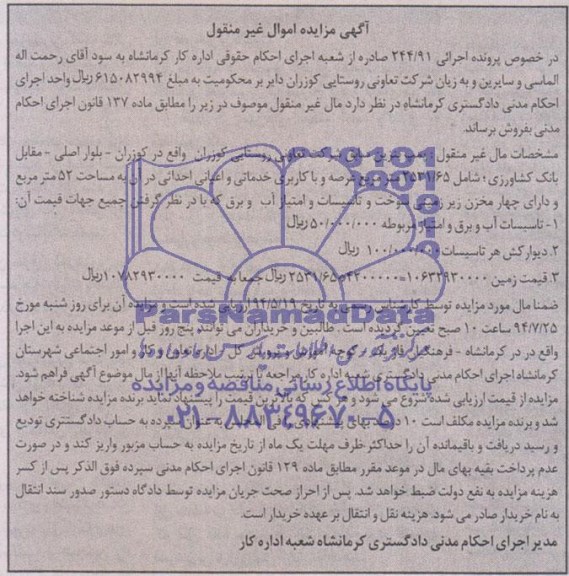 آگهی مزایده اموال غیر منقول
در خصوص پرونده اجرائی ۲۴۴/۹۱ صادره از شعبه اجرای احکام حقوقی اداره کار کرمانشاه به سود آقای رحمت اله
الماسی و سایرین و به زیان شرکت تعاونی روستایی کوزران دایر بر محکومیت به مبلغ ۶۱۵۰۸۲۹۹۴ ریال واحد اجرای
احکام مدنی دادگستری کرمانشاه در نظر دارد مال غیر منقول موصوف در زیر را مطابق ماده ۱۳۷ قانون اجرای احکام
مدنی بفروش برساند.
مشخصات مال غیر منقول: شرکت تعاونی روستایی کوزران واقع در کوزران - بلوار اصلی - مقابل
بانک کشاورزی؛ شامل ۲۵۳۱/۶۵ متر مربع عرصه و با کاربری خدماتی و اعیانی احداثی در آن به مساحت ۵۲ متر مربع
و دارای چهار مخزن زیر زمینی سوخت و تاسیسات و امتیاز آب و برق که با در نظر گرفتن جمیع جهات قیمت آن:
۱- تاسیسات آب و برق و امتیاز مربوطه ۵۰/۰۰۰/۰۰۰ ریال
۲. دیوار کش هر تاسیسات ۱۰۰/۰۰۰/۰۰۰ ریال
۳. قیمت زمین ۱۰۶۳۲۹۳۰۰۰۰=۴۲۰۰۰۰۰*۲۵۳۱/۶۵ ریال جمعا به قیمت ۱۰۷۸۲۹۳۰۰۰۰ ریال
ضمنا مال مورد مزایده توسط کارشناس رسمی به تاریخ ۹۴/۵/۱۹ ارزیابی شده است و مزایده آن برای روز شنبه مورخ
۹۴/۷/۲۵ ساعت ۱۰ صبح تعیین گردیده است. طالبین و خریداران می توانند پنج روز قبل از موعد مزایده به این اجرا
واقع در کرمانشاه - فرهنگیان فاز یک - اداره کل تعاون کار و امور اجتماعی شهرستان
کرمانشاه اجرای احکام مدنی دادگستری شعبه اداره کار مراجعه تا ترتیب ملاحظه آنها از مال موضوع آگهی فراهم شود.
مزایده از قیمت ارزیابی شده شروع می شود و هر کس که بالاترین قیمت را پیشنهاد نماید برنده مزایده شناخته خواهد
شد و برنده مزایده مکلف است ۱۰ درصد بهای پیشنهادی را فی المجلس به عنوان سپرده به حساب دادگستری تودیع
و رسید دریافت و باقیمانده آن را حداکثر ظرف مهلت یک ماه از تاریخ مزایده به حساب مزبور واریز کند و در صورت
عدم پرداخت بقیه بهای مال در موعد مقرر مطابق ماده ۱۲۹ قانون اجرای احکام مدنی سپرده فوق الذکر پس از کسر
هزینه مزایده به نفع دولت ضبط خواهد شد. پس از احراز صحت جریان مزایده توسط دادگاه دستور صدور سند انتقال
به نام خریدار صادر می شود. هزینه نقل و انتقال بر عهده خریدار است.
مدیر اجرای احکام مدنی دادگستری کرمانشاه شعبه اداره کار
ParsNamadData
پایگاه اطلاع رسانی مناقصه و مزایده
۰۲۱-۸۸۳۴۹۶۷۰-۵